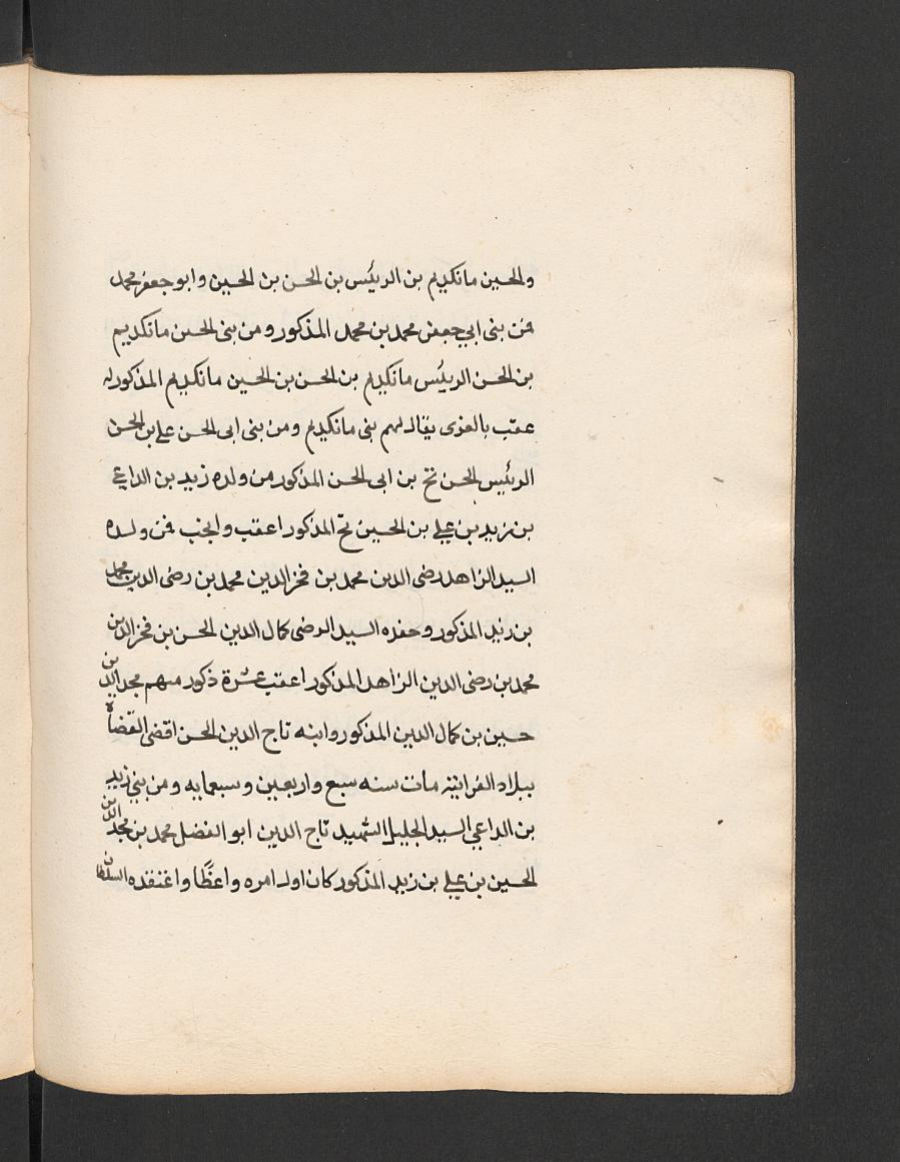 والحسين مانكديم بن الرئيس بن الحسن بن الحسين وابو جعفر محمد
فمن بنى ابي جعفر محمد بن محمد المذكور ومن بنى الحسن مانكديم
بن الحسن الرئيس مانكديم بن الحسن بن الحسين مانكديم المذكور له
عقب بالغرى يقال لهم بنى مانكديم ومن بنى ابى الحسن على بن الحسن
الرئيس الحسن تج بن ابى الحسن المذكور من ولده زيد بن الداعي
بن زيد بن علي بن الحسين تج المذكور اعقب وانجب فمن ولده
السيد الزاهد رضى الدين محمد بن فخر الدين محمد بن رضى الدين محمد
بن زيد المذكور وحفده السيد الرضى كمال الدين الحسن بن فخر الدين
محمد بن رضى الدين الزاهد المذكور اعقب عشرة ذكور منهم مجد الدين
حسين بن كمال الدين المذكور وابنه تاج الدين الحسن اقضى القضاة
ببلاد الفراتيه مات سنه سبع واربعين وسبعمايه ومن بني زيد
بن الداعي السيد الجليل الشهيد تاج الدين ابو الفضل محمد بن مجد الدين
الحسين بن علي بن زيد المذكور كان اول امره واعظًا واعتقده السلطان